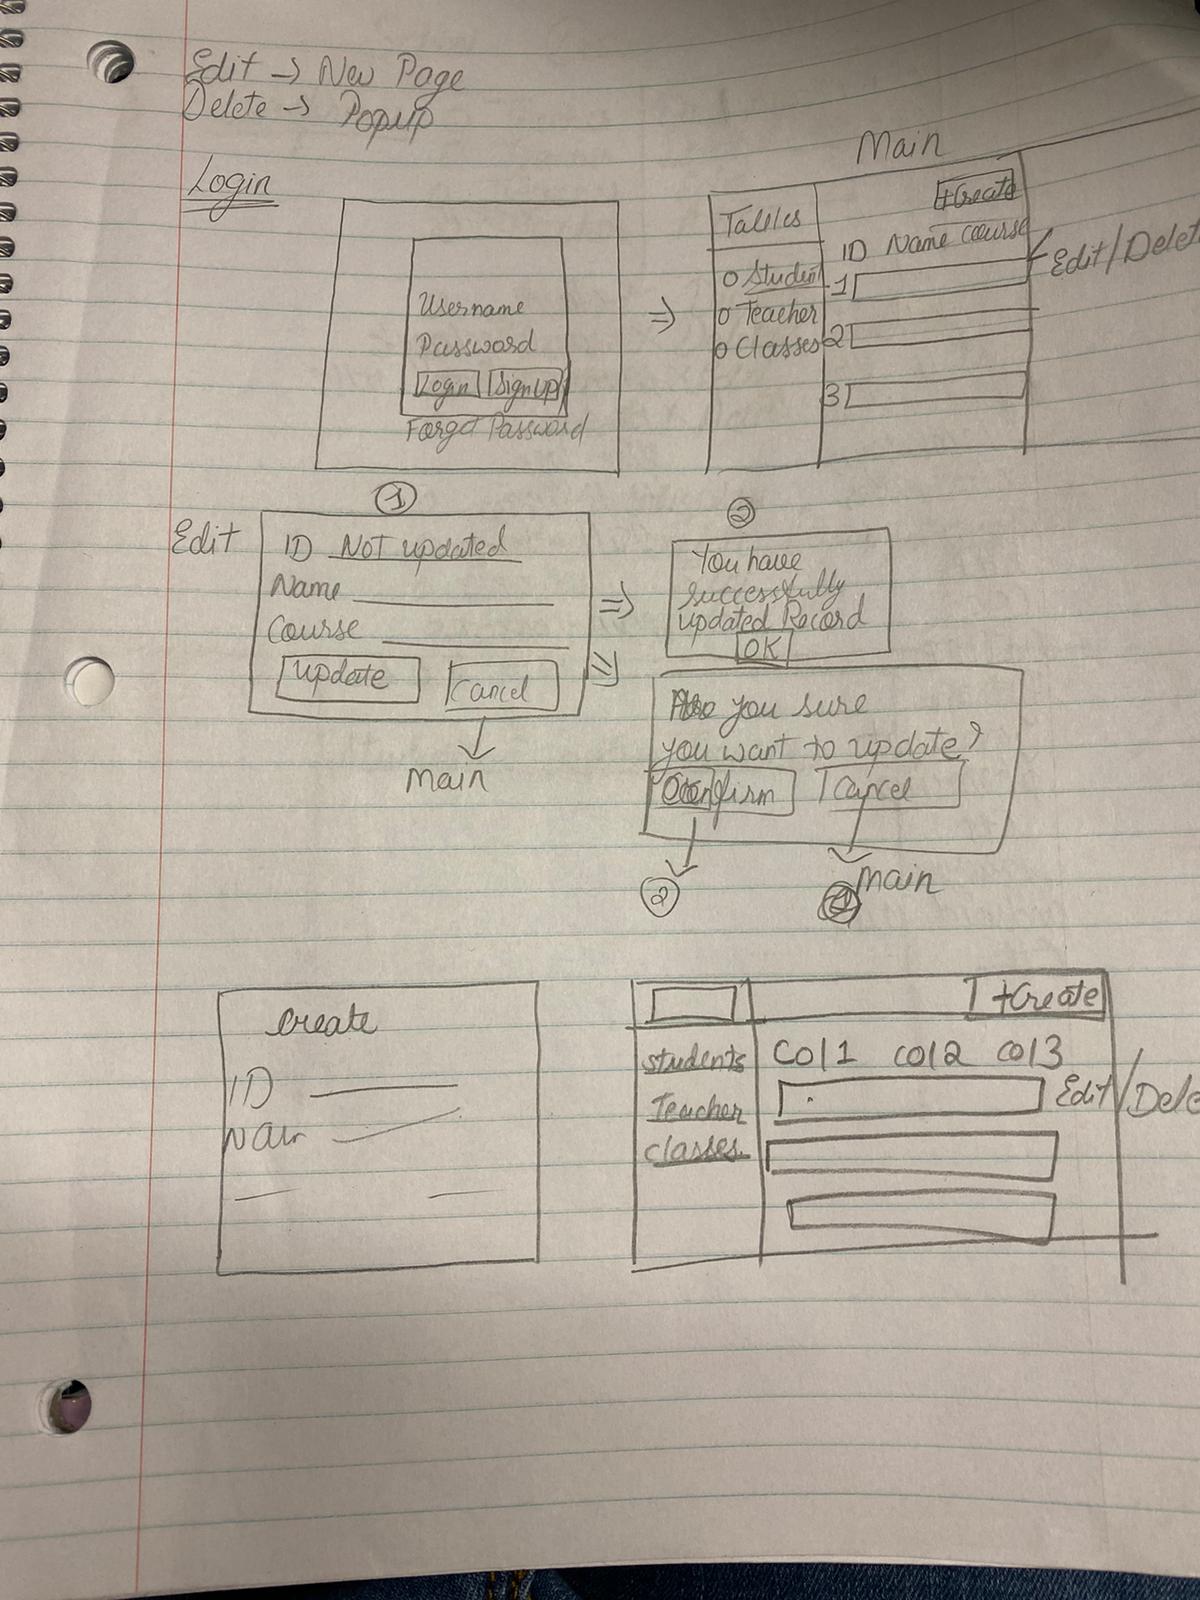 Edit → New Page
Delete → Popup
Login
Username
Password
Login SignUp
Forgot Password
Main
Tables
+Create
ID Name Course
Edit/Delet
o Student
o Teacher
o Classes
1
2
3
1
Edit
ID Not updated
Name
Course
Update Cancel
Main
2
You have
successfully
updated Record
OK
you sure
you want to update?
Confirm Cancel
2
Main
Create
ID
Nam
+Create
students
Teacher
classes
Col1 col2 col3
Edit/Dele